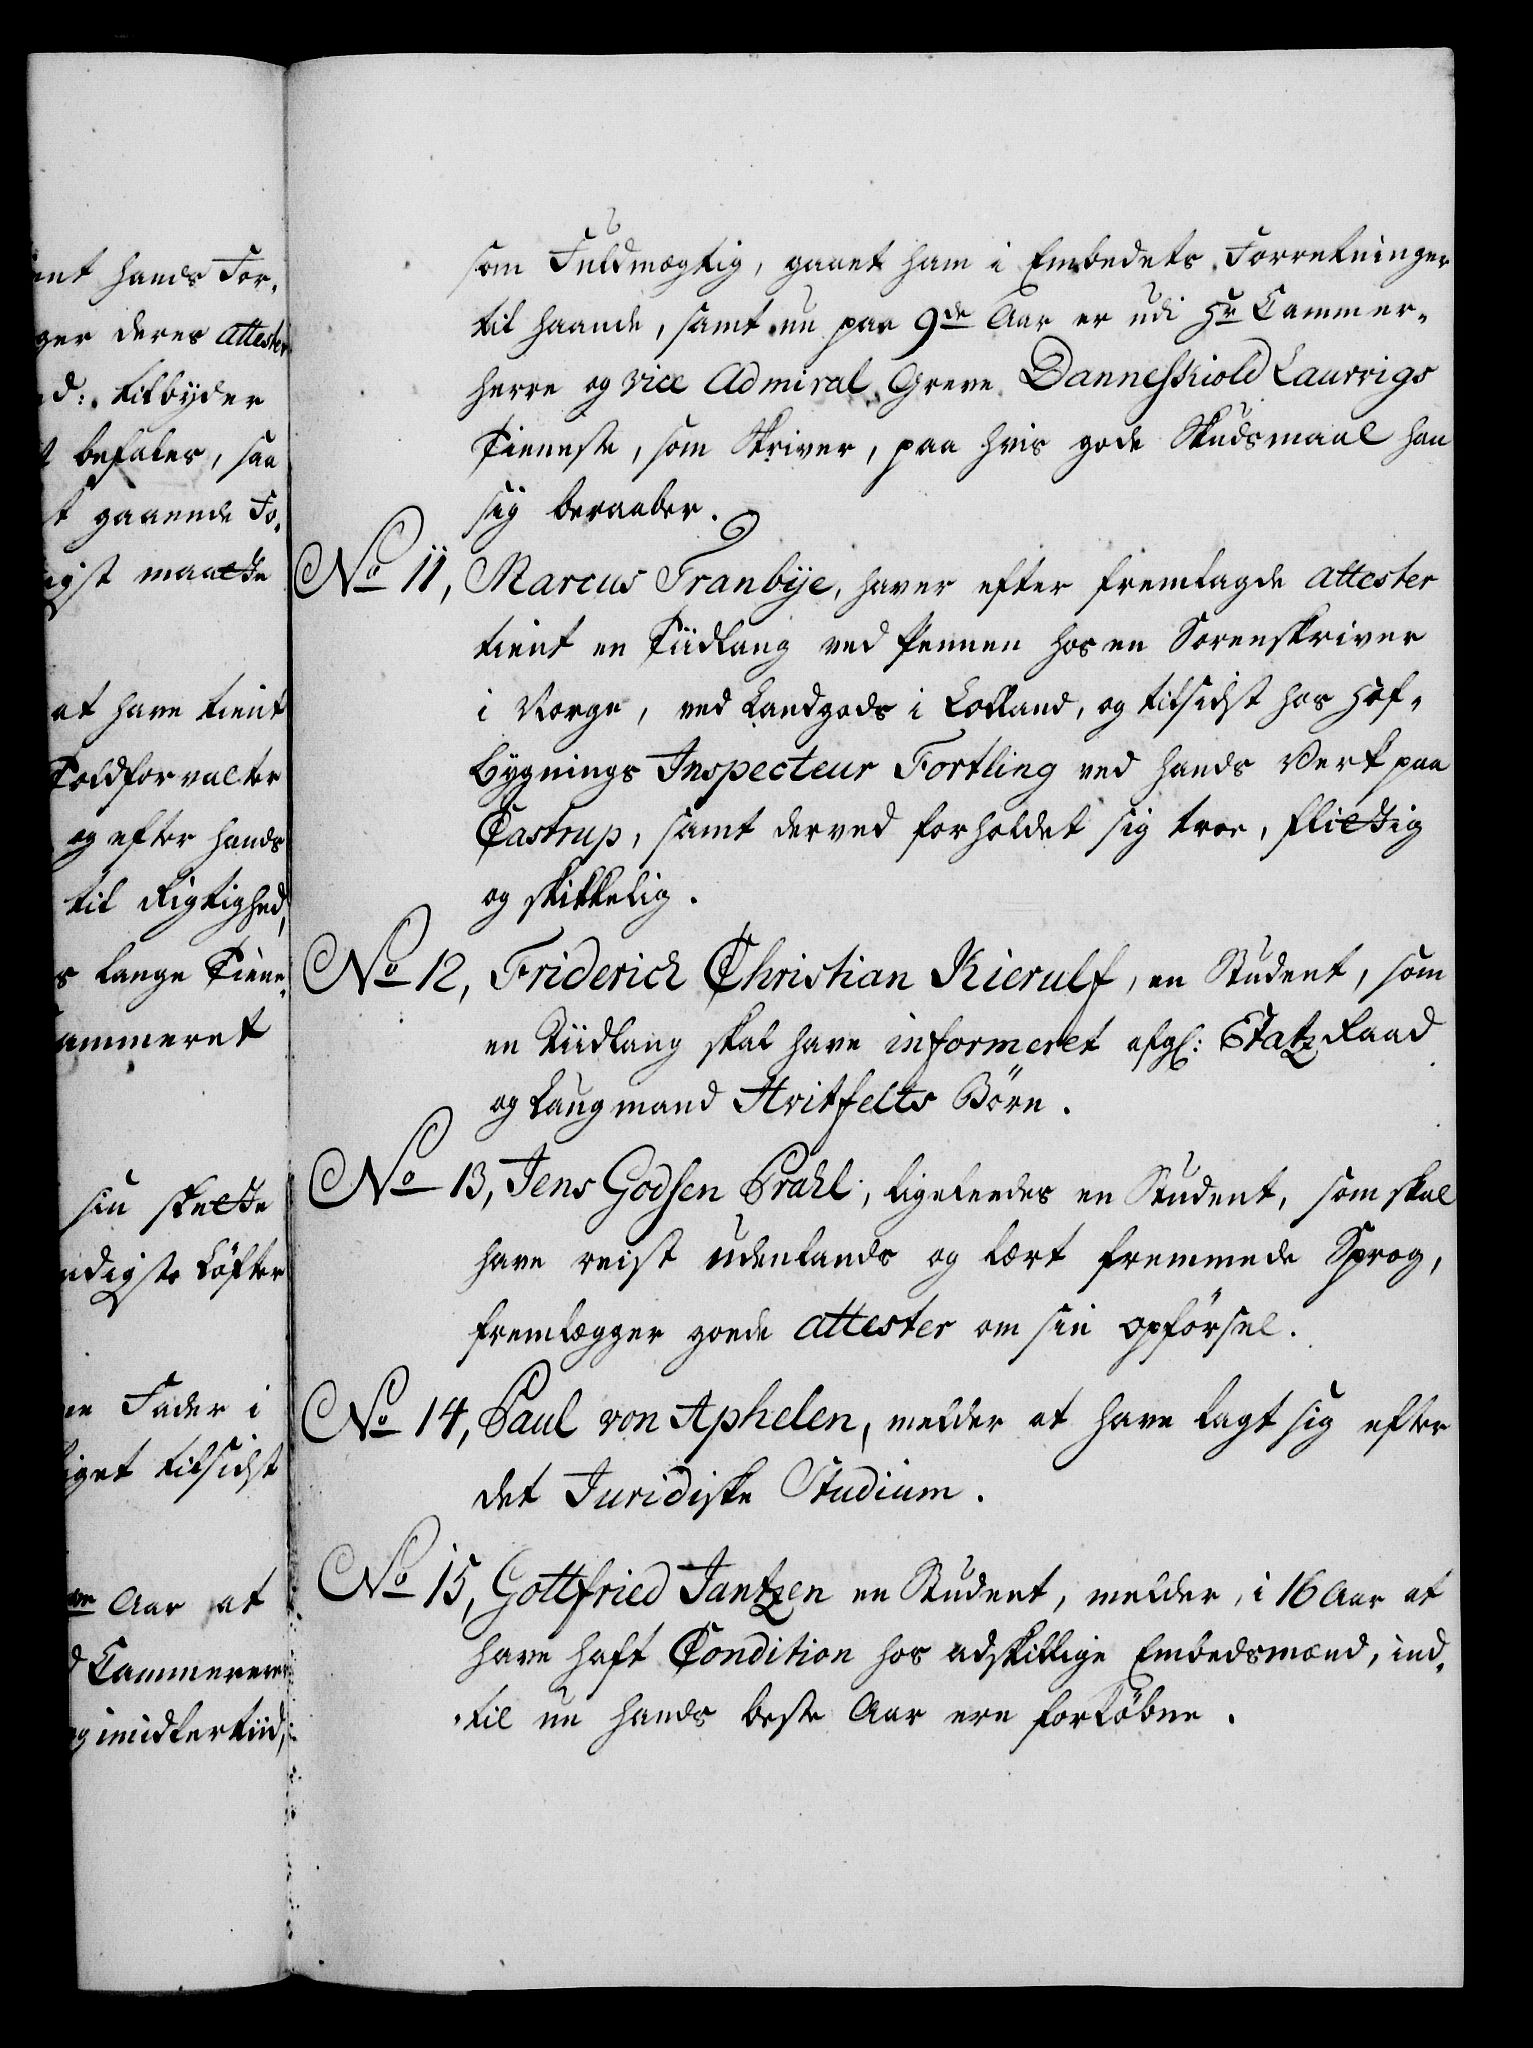 ent hands For,
ger deres Attester
d: tilbyder
befales, saa
t gaaende Fo,
igst maatte
at have tient
Toldforvalter
og efter hands
til Rigtighed,
s lange Tiene,
ammeret
sin skette
aadigste Løfter
ne Fader i
iget tilsidst
Aar at
d Cammererer
og imidlertiid,
som Fuldmægtig, gaaet ham i Embedets Forretninger
til haande, samt nu paa 9de Aar er udi Hr Cammer,
herre og vice Admiral Greve Danneskiold Laurvigs
Tieneste, som Skriver, paa hvis gode Skudsmaal han
sig beraaber.
No 11, Marcus Tranbÿe, haver efter fremlagde attester
tient en Tiidlang ved Pennen hos en Sorenskriver
i Norge, ved Landgods i Lolland, og tilsidst hos Hof,
Bygnings Inspecteur Fortling ved hands Verk paa
Castrup, samt derved forholdet sig troe, flittig
og skikkelig.
No 12, Friderich Christian Kierulf, en Student, som
en Tiidlang skal have informeret afgl: Etatz Raad
og Laugmand Hvitfelts Börn.
No 13, Jens Godsen Prahl, ligeleedes en Student, som skal
have reist udenlands og lært fremmede Sprog,
fremlægger goede attester om sin opførsel.
No 14, Paul von Aphelen, melder at have lagt sig efter
det Juridiske Studium.
No 15, Gottfried Jantzen en Student, melder, i 16 Aar at
have haft Condition hos adskillige Embedsmænd, ind,
til nu hands beste Aar ere forløbne.